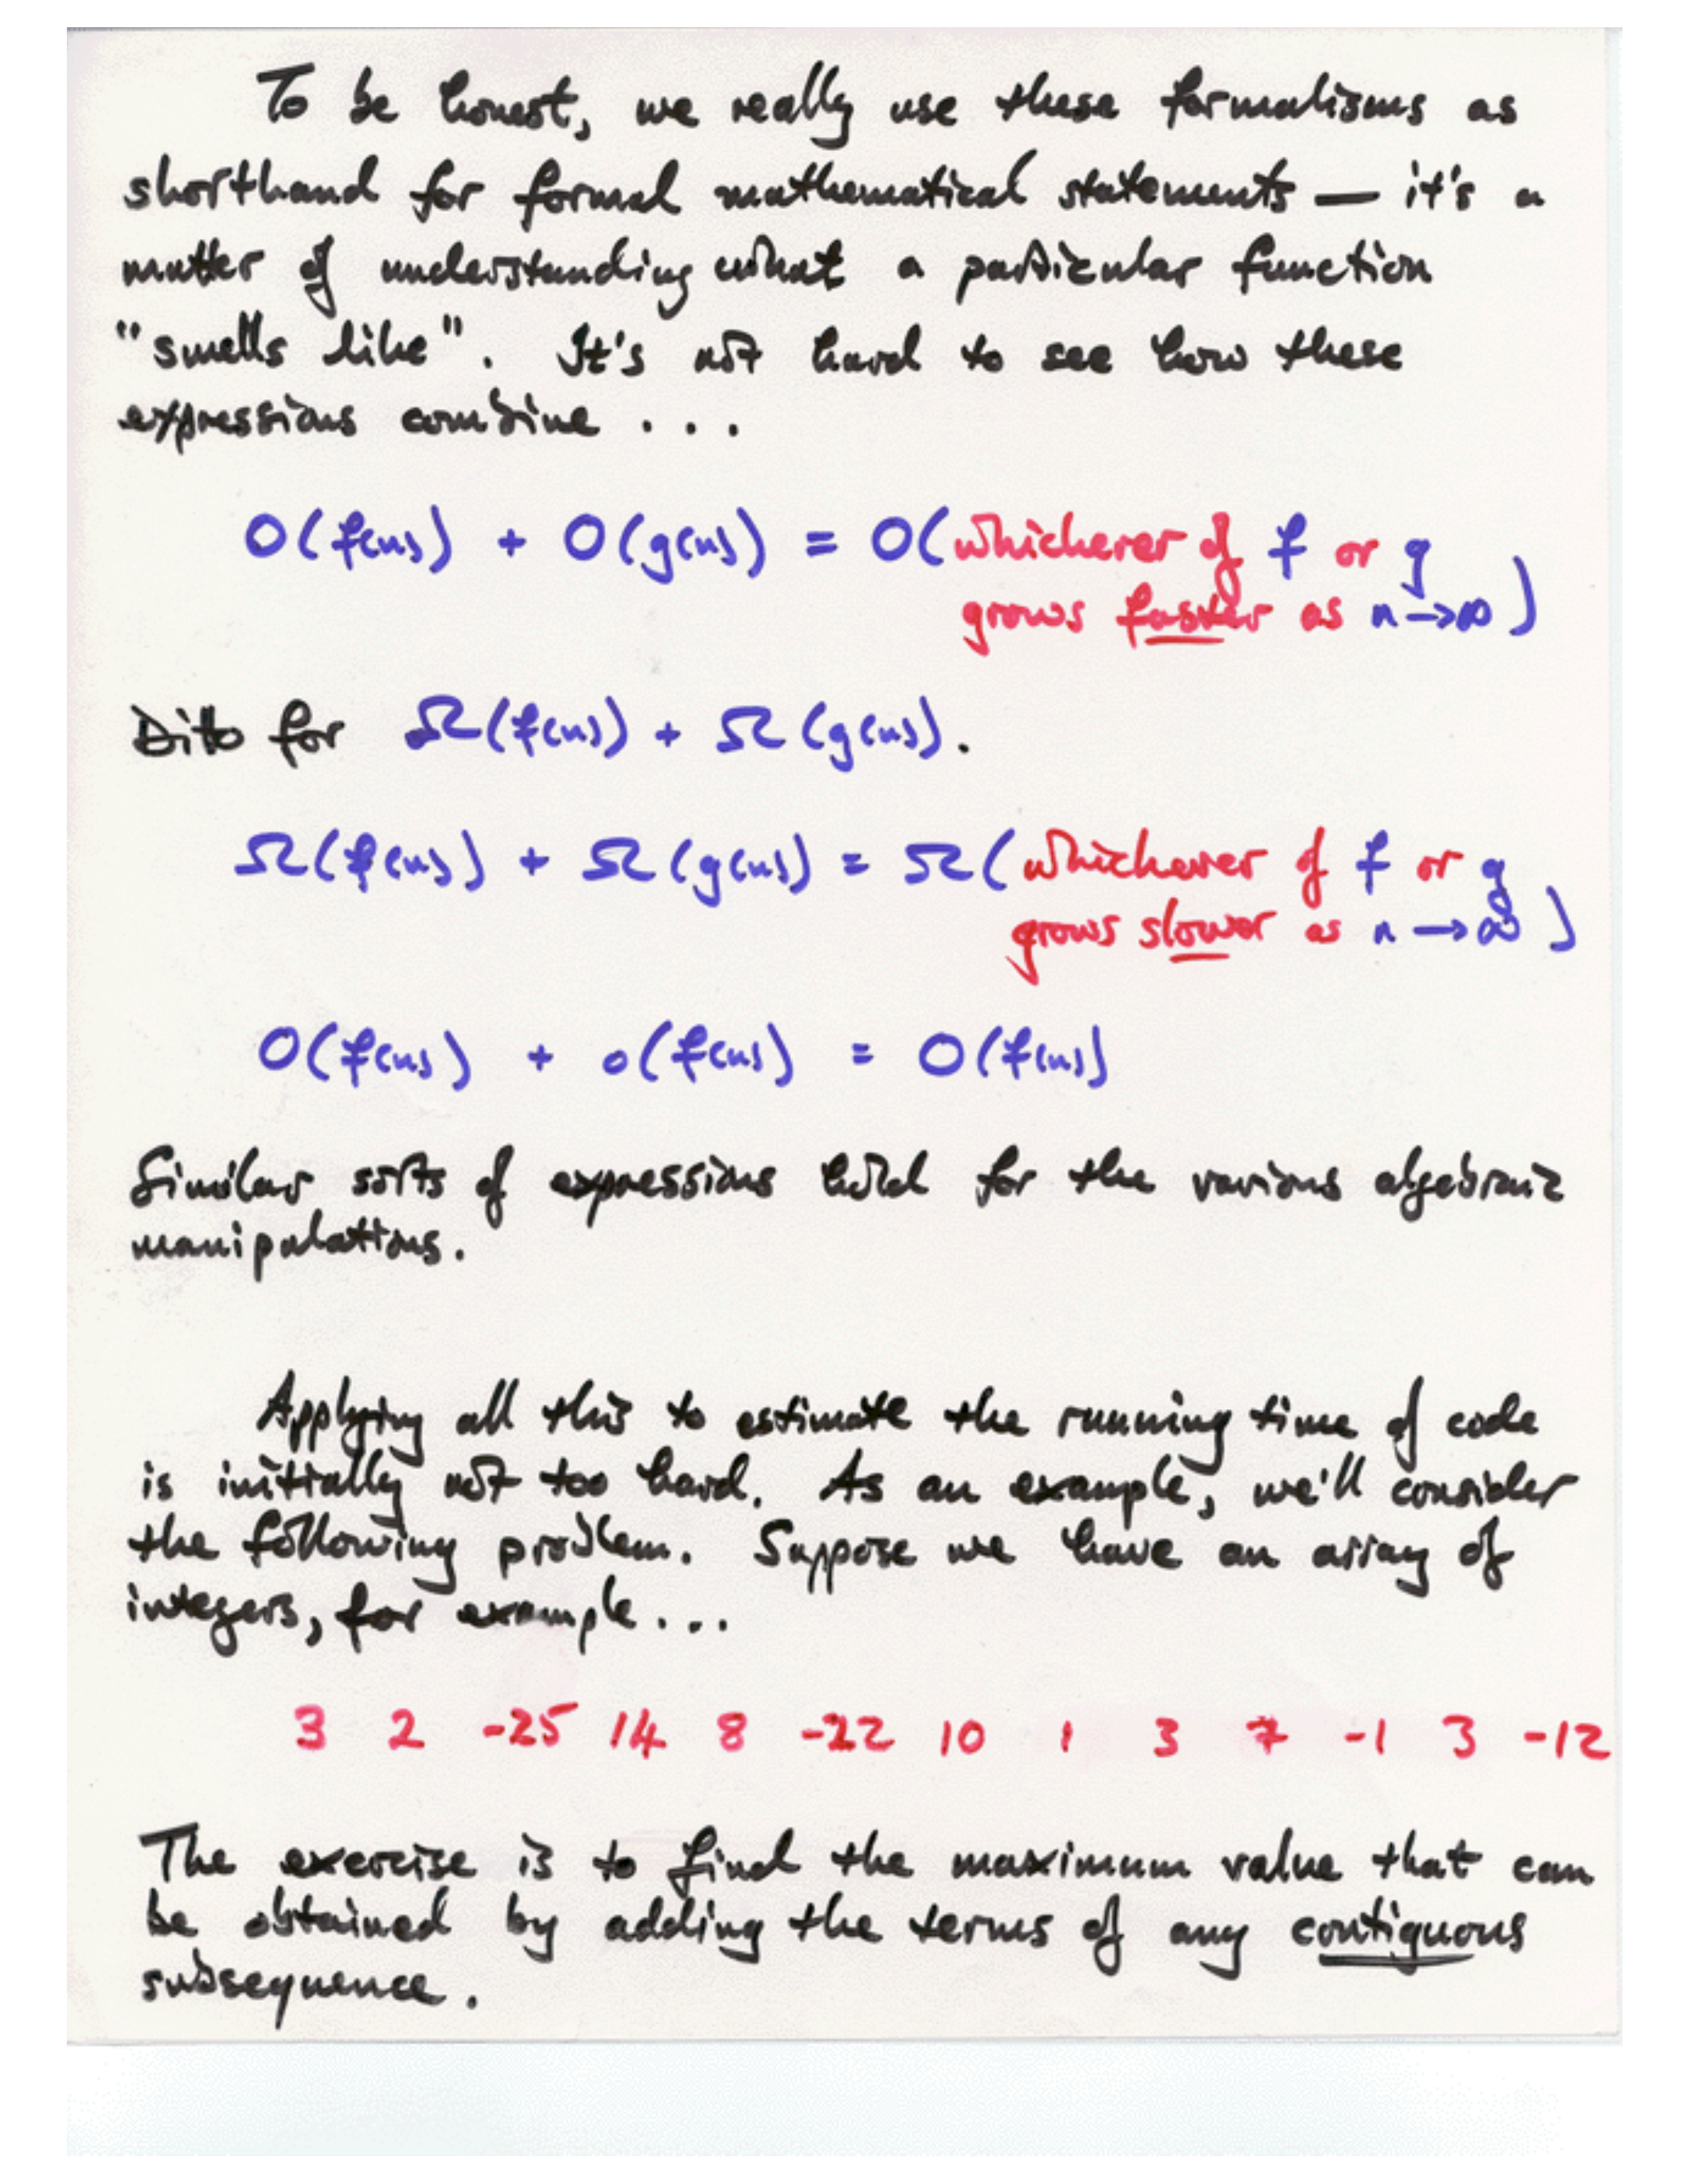 To be honest, we really use these formalisms as
shorthand for formal mathematical statements — it's a
matter of understanding what a particular function
"smells like". It's not hard to see how these
expressions combine ...
O(f(n)) + O(g(n)) = O(whichever of f or g
grows faster as n→∞)
Ditto for Ω(f(n)) + Ω(g(n)).
Ω(f(n)) + Ω(g(n)) = Ω(whichever of f or g
grows slower as n→∞)
O(f(n)) + o(f(n)) = O(f(n))
Similar sorts of expressions hold for the various algebraic
manipulations.
Applying all this to estimate the running time of code
is initially not too hard. As an example, we'll consider
the following problem. Suppose we have an array of
integers, for example...
3 2 -25 14 8 -22 10 1 3 7 -1 3 -12
The exercise is to find the maximum value that can
be obtained by adding the terms of any contiguous
subsequence.